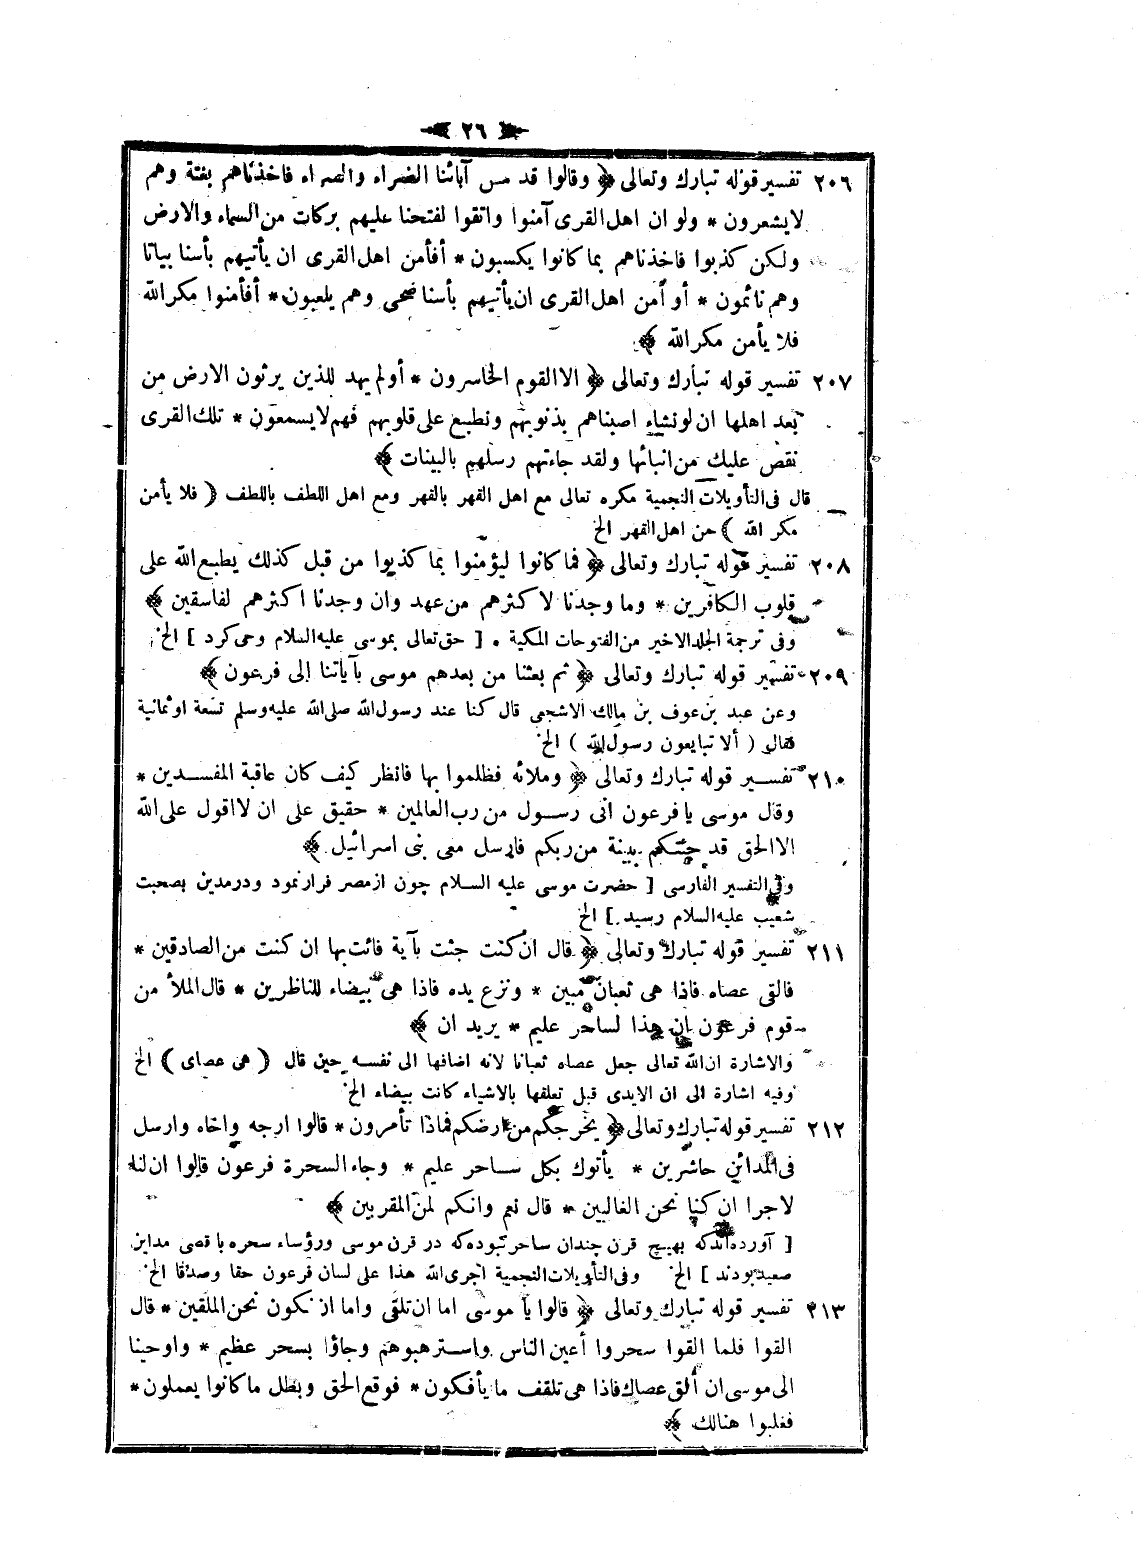 ٢٦
٢٠٦ تفسير قوله تبارك وتعالى ﴿ وقالوا قد مس آبائنا الضراء والصراء فاخذناهم بغتة وهم
لايشعرون * ولو ان اهل القرى آمنوا واتقوا لفتحنا عليهم بركات من السماء والارض
ولكن كذبوا فاخذناهم بما كانوا يكسبون * أفأمن اهل القرى ان يأتيهم بأسنا بياتا
وهم نائمون * أو أمن اهل القرى ان يأتيهم بأسنا ضحى وهم يلعبون * أفأمنوا مكر الله
فلا يأمن مكر الله ﴾
٢٠٧ تفسير قوله تبارك وتعالى ﴿ الا القوم الخاسرون * أولم يهد للذين يرثون الارض من
بعد اهلها ان لونشاء اصبناهم بذنوبهم ونطبع على قلوبهم فهم لايسمعون * تلك القرى
نقص عليك من انبائها ولقد جاءتهم رسلهم بالبينات ﴾
قال فى التأويلات النجمية مكره تعالى مع اهل القهر بالقهر ومع اهل اللطف باللطف ( فلا يأمن
مكر الله ) من اهل القهر الخ
٢٠٨ تفسير قوله تبارك وتعالى ﴿ فما كانوا ليؤمنوا بما كذبوا من قبل كذلك يطبع الله على
قلوب الكافرين * وما وجدنا لاكثرهم من عهد وان وجدنا اكثرهم لفاسقين ﴾
وفى ترجمة الجلد الاخير من الفتوحات المكية . [ حق تعالى بموسى عليه السلام وحى كرد ] الخ
٢٠٩ تفسير قوله تبارك وتعالى ﴿ ثم بعثنا من بعدهم موسى بآياتنا الى فرعون ﴾
وعن عبد بن عوف بن مالك الاشجعى قال كنا عند رسول الله صلى الله عليه وسلم تسعة اوثمانية
فقال ( ألا تبايعون رسول الله ) الخ
٢١٠ تفسير قوله تبارك وتعالى ﴿ وملائه فظلموا بها فانظر كيف كان عاقبة المفسدين *
وقال موسى يا فرعون انى رسول من رب العالمين * حقيق على ان لااقول على الله
الا الحق قد جئتكم ببينة من ربكم فارسل معى بنى اسرائيل ﴾
وفى التفسير الفارسى [ حضرت موسى عليه السلام چون از مصر فرار نمود ودرمدين بصحبت
شعيب عليه السلام رسيد ] الخ
٢١١ تفسير قوله تبارك وتعالى ﴿ قال ان كنت جئت بآية فائت بها ان كنت من الصادقين *
فالقى عصاه فاذا هى ثعبان مبين * ونزع يده فاذا هى بيضاء للناظرين * قال الملأ من
قوم فرعون ان هذا لساحر عليم * يريد ان ﴾
والاشارة ان الله تعالى جعل عصاه ثعبانا لانه اضافها الى نفسه حين قال ( هى عصاى ) الخ
وفيه اشارة الى ان الايدى قبل تعلقها بالاشياء كانت بيضاء الخ
٢١٢ تفسير قوله تبارك وتعالى ﴿ يخرجكم من ارضكم فماذا تأمرون * قالوا ارجه واخاه وارسل
فى المدائن حاشرين * يأتوك بكل ساحر عليم * وجاء السحرة فرعون قالوا ان لنا
لاجرا ان كنا نحن الغالبين * قال نعم وانكم لمن المقربين ﴾
[ آورده اندكه بهيچ قرن چندان ساحر نبوده كه در قرن موسى ورؤساء سحره با قصى مداين
صعيد بودند ] الخ وفى التأويلات النجمية اجرى الله هذا على لسان فرعون حقا وصدقا الخ
٢١٣ تفسير قوله تبارك وتعالى ﴿ قالوا يا موسى اما ان تلقى واما ان نكون نحن الملقين * قال
القوا فلما القوا سحروا أعين الناس واسترهبوهم وجاؤا بسحر عظيم * واوحينا
الى موسى ان ألق عصاك فاذا هى تلقف ما يأفكون * فوقع الحق وبطل ما كانوا يعملون *
فغلبوا هنالك ﴾